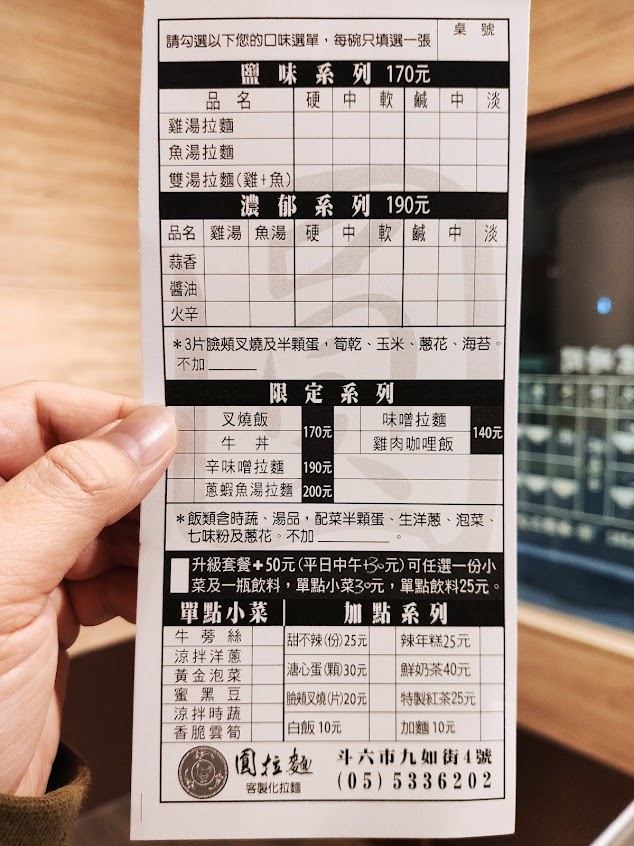 請勾選以下您的口味選單，每碗只填選一張
桌 號
鹽味系列 170元
品 名 硬 中 軟 鹹 中 淡
雞湯拉麵
魚湯拉麵
雙湯拉麵(雞+魚)
濃郁系列 190元
品名 雞湯 魚湯 硬 中 軟 鹹 中 淡
蒜香
醬油
火辛
＊3片臉頰叉燒及半顆蛋，筍乾、玉米、蔥花、海苔。
不加______
限定系列
叉燒飯 170元 味噌拉麵 140元
牛丼 雞肉咖哩飯
辛味噌拉麵 190元
蔥蝦魚湯拉麵 200元
＊飯類含時蔬、湯品，配菜半顆蛋、生洋蔥、泡菜、
七味粉及蔥花。不加________。
升級套餐+50元(平日中午+30元)可任選一份小
菜及一瓶飲料，單點小菜30元，單點飲料25元。
單點小菜 加點系列
牛蒡絲 甜不辣(份)25元 辣年糕25元
涼拌洋蔥
黃金泡菜 溏心蛋(顆)30元 鮮奶茶40元
蜜黑豆 臉頰叉燒(片)20元 特製紅茶25元
涼拌時蔬
香脆雲筍 白飯10元 加麵10元
圓拉麵
客製化拉麵
斗六市九如街4號
(05)5336202